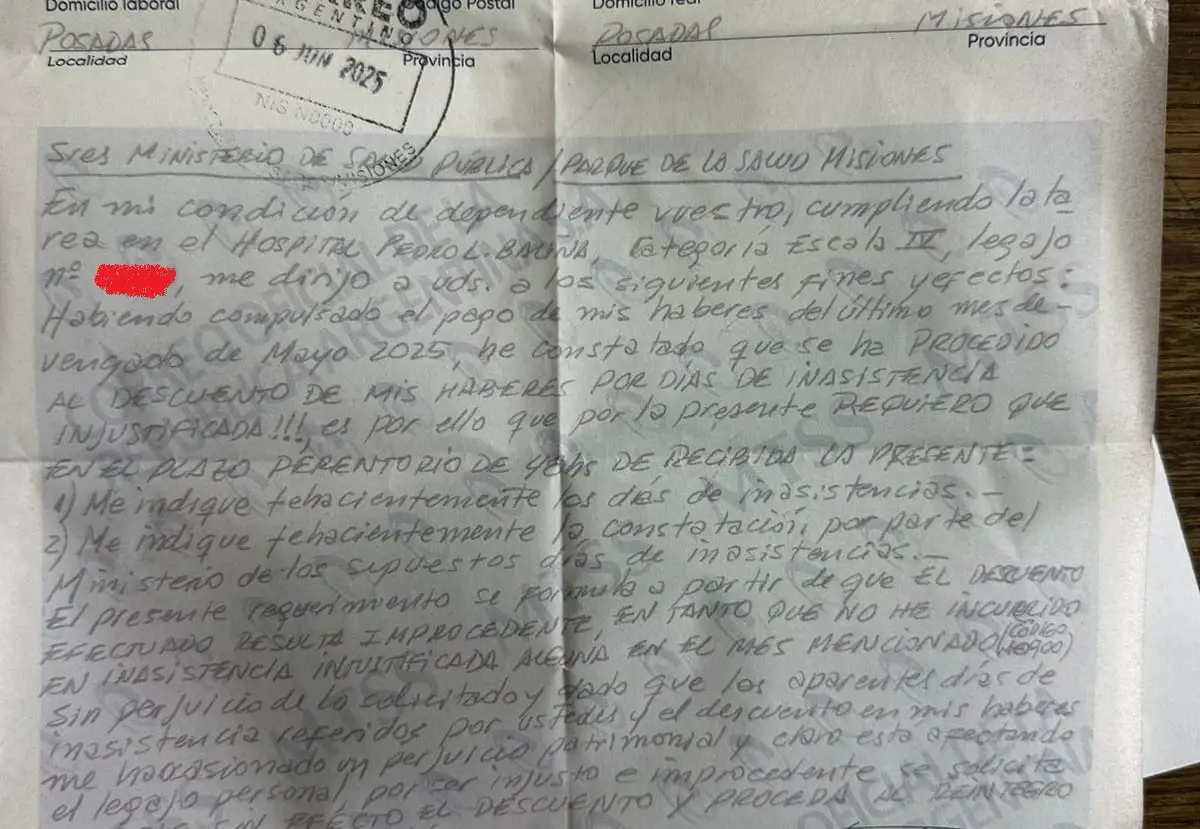 Domicilio laboral
Código Postal
Domicilio real
POSADAS
MISIONES
POSADAS
MISIONES
Localidad
Provincia
Localidad
Provincia
CORREO
ARGENTINO
06 JUN 2025
NIS N0000
MISIONES
Sres MINISTERIO DE SALUD PÚBLICA / PARQUE DE LA SALUD MISIONES
En mi condición de dependiente vuestro, cumpliendo la ta
rea en el HOSPITAL PEDRO L. BALIÑA, Categoría Escala IV, legajo
nº , me dirijo a uds. a los siguientes fines y efectos:
Habiendo compulsado el pago de mis haberes del último mes de-
vengado de Mayo 2025, he constatado, que se ha PROCEDIDO
AL DESCUENTO DE MIS HABERES POR DÍAS DE INASISTENCIA
INJUSTIFICADA!!!, es por ello que por la presente REQUIERO QUE
EN EL PLAZO PERENTORIO DE 48hs DE RECIBIDA LA PRESENTE:
1) Me indique fehacientemente los días de inasistencias.-
2) Me indique fehacientemente la constatación, por parte del
Ministerio de los supuestos días de inasistencias.-
El presente requerimiento se formula a partir de que EL DESCUENTO
EFECTUADO RESULTA IMPROCEDENTE, EN TANTO QUE NO HE INCURRIDO
EN INASISTENCIA INJUSTIFICADA ALGUNA EN EL MES MENCIONADO (CÓDIGO
Sin perjuicio de lo solicitado y dado que los aparentes días de
inasistencia referidos por ustedes y el descuento en mis haberes
me ha ocasionado un perjuicio patrimonial y claro esta afectando
el legajo personal, por ser injusto e improcedente se solicita
SIN EFECTO EL DESCUENTO Y PROCEDA AL REINTEGRO
CORREO OFICIAL DE LA
REPUBLICA ARGENTINA